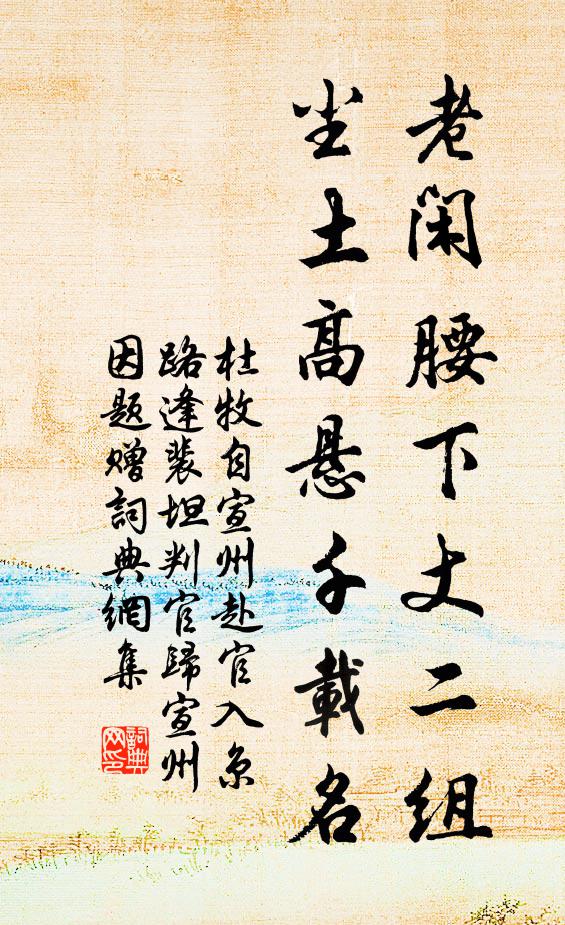 老闲腰下丈二组
尘土高悬千載名
杜牧自宣州赴官入京
路逢裴坦判官歸宣州
因题赠詞典網集
詞典网印